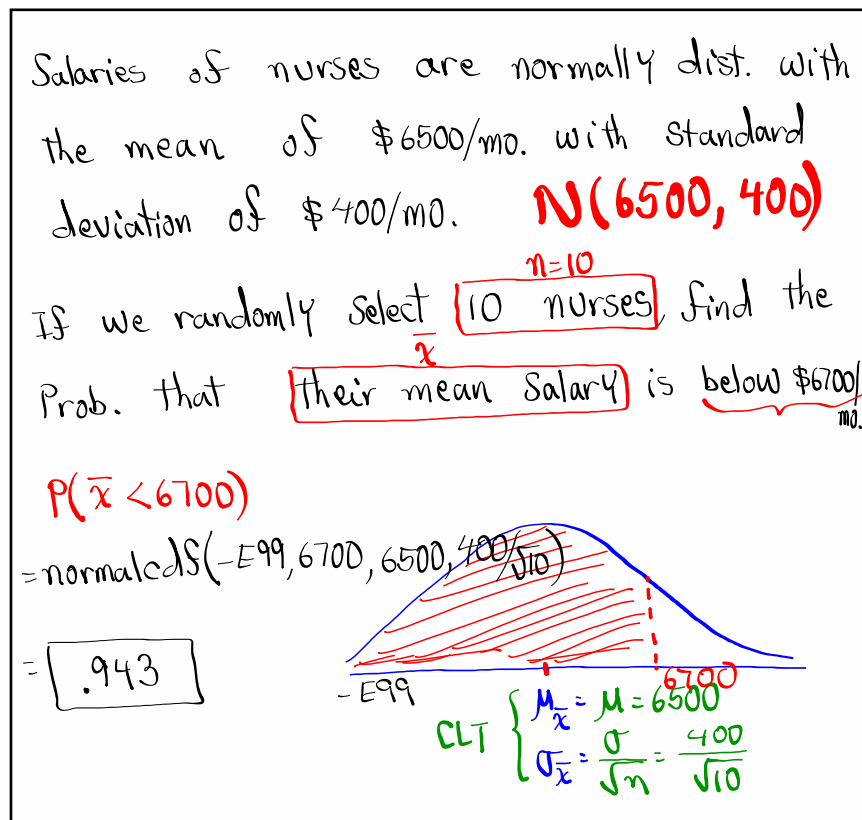 Salaries of nurses are normally dist. with
the mean of $6500/mo. with standard
deviation of $400/mo. N(6500, 400)
n=10
If we randomly select 10 nurses, find the
x̄
Prob. that their mean Salary is below $6700/
mo.
P(x̄ < 6700)
= normalcdf(-E99, 6700, 6500, 400/√10)
= .943
-E99
6700
CLT { μx̄ = μ = 6500
σx̄ = σ/√n = 400/√10